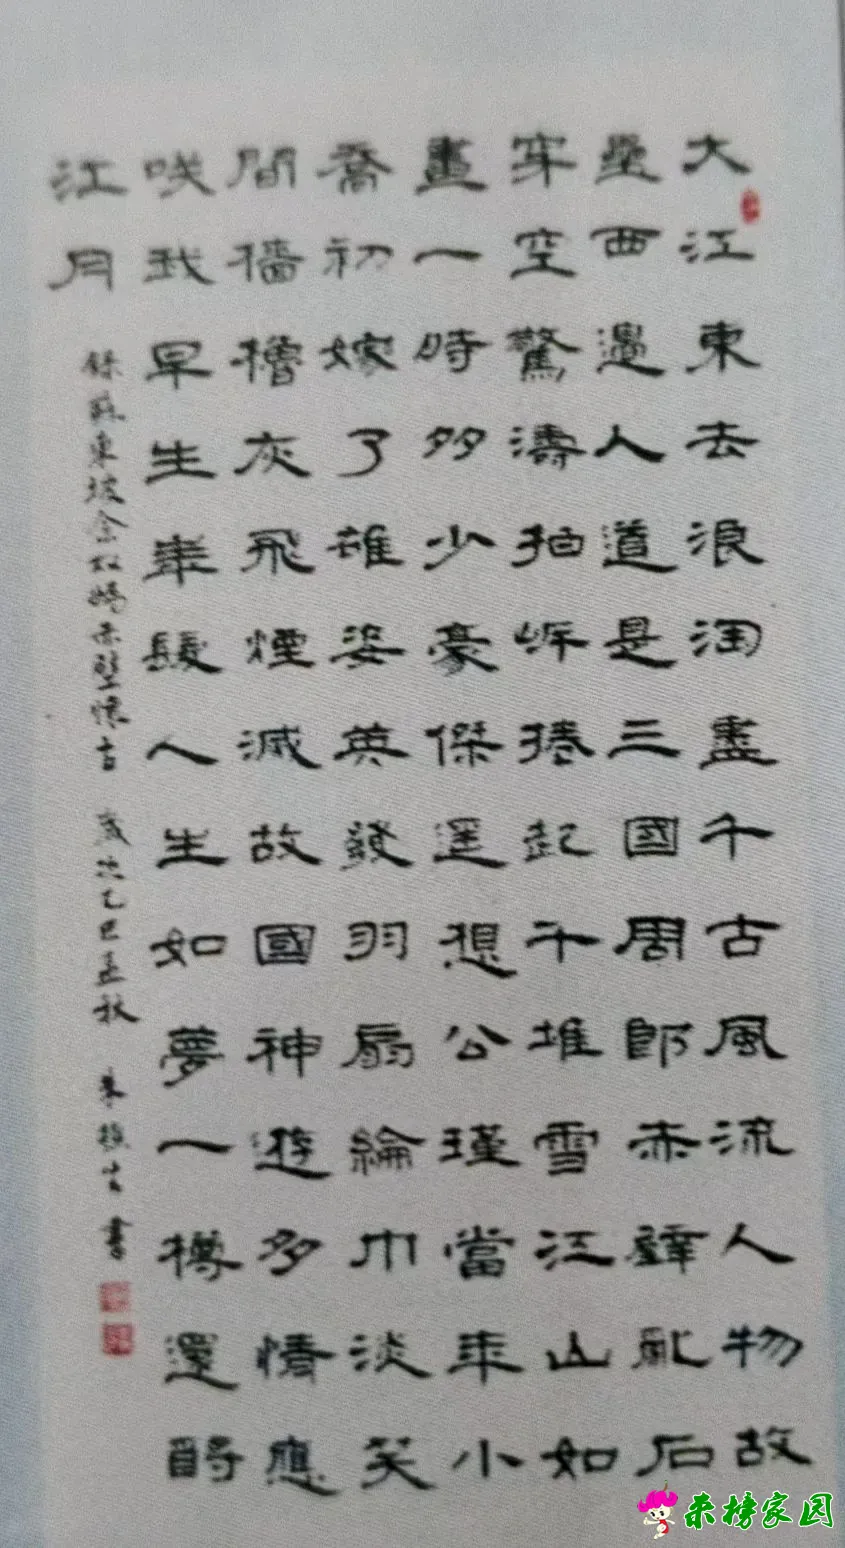 大江東去浪淘盡千古風流人物故
壘西邊人道是三國周郎赤壁亂石
穿空驚濤拍岸捲起千堆雪江山如
畫一時多少豪傑遥想公瑾當年小
喬初嫁了雄姿英發羽扇綸巾淡笑
間檣櫓灰飛煙滅故國神遊多情應
咲我早生華髮人生如夢一樽還酹
江月
錄蘇東坡念奴嬌赤壁懷古 歲次乙巳孟秋 書
来榜家园